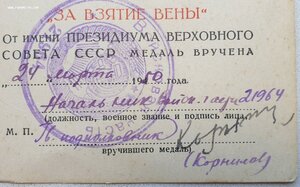 "ЗА ВЗЯТИЕ ВЕНЫ"
ОТ ИМЕНИ ПРЕЗИДИУМА ВЕРХОВНОГО
СОВЕТА СССР МЕДАЛЬ ВРУЧЕНА
"24" марта 1950 года.
Начальник 21964
(должность, военное звание и подпись лица,
М. П. подполковник
вручившего медаль)
(Корнилов)